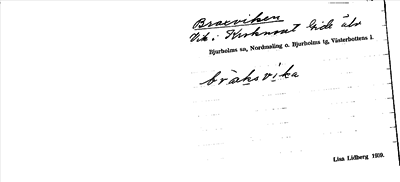 Braxviken
Vik i Gide älv
Bjurholms sn, Nordmaling o. Bjurholms tg, Västerbottens l.
bràksvìka
Lisa Lidberg 1939.